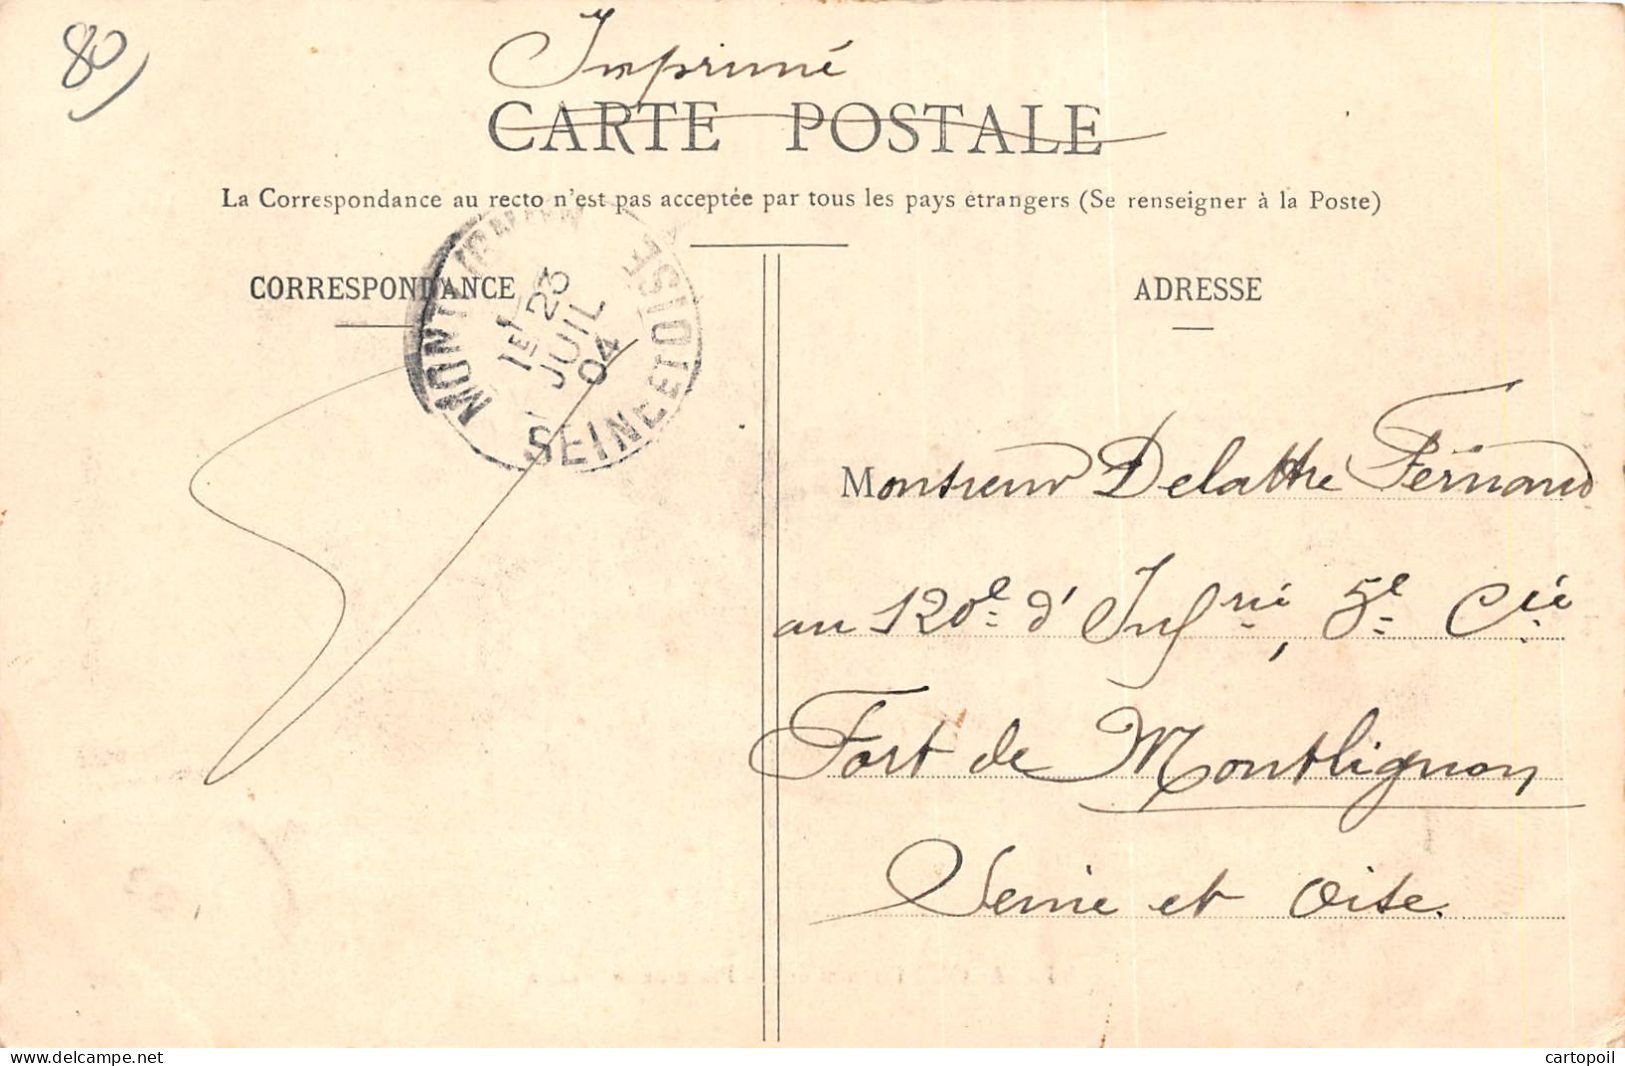 80
Imprimé
CARTE POSTALE
La Correspondance au recto n'est pas acceptée par tous les pays étrangers (Se renseigner à la Poste)
CORRESPONDANCE
ADRESSE
23
JUIL
04
SEINE ET OISE
Monsieur Delattre Fernand
au 120e d'Infrie, 5e Cie
Fort de Montlignon
Seine et Oise.
cartopoil